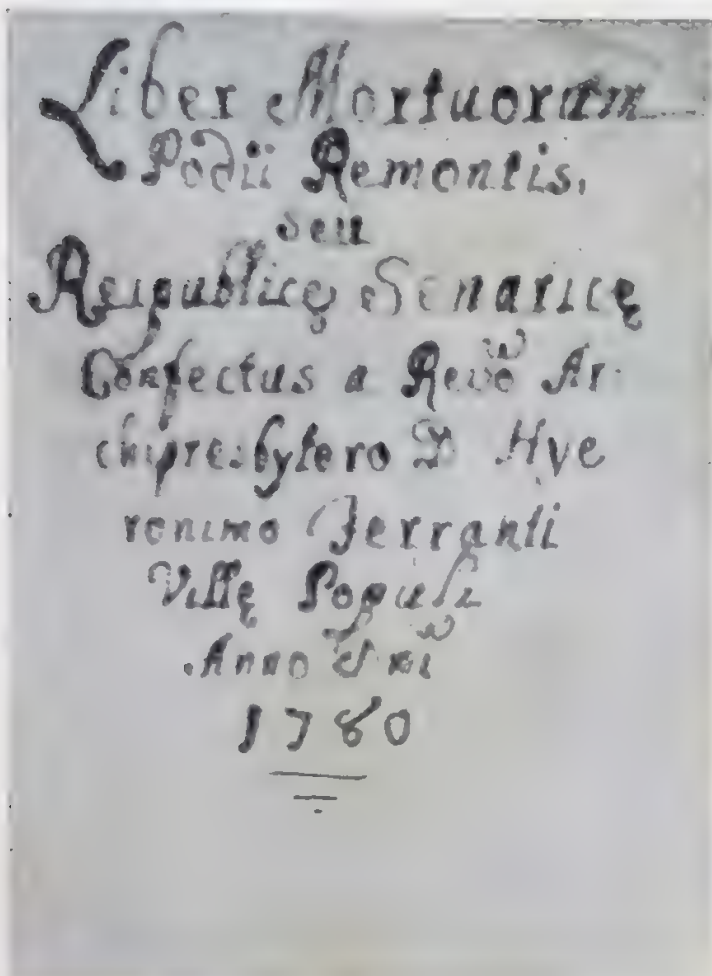 Liber Mortuorum
Podii Remontis,
seu
Reipublicę Senaricę
Confectus a Revdo Ar-
chipresbytero D Hye
ronimo Ferranti
Villę Populi
Anno Dni
1780